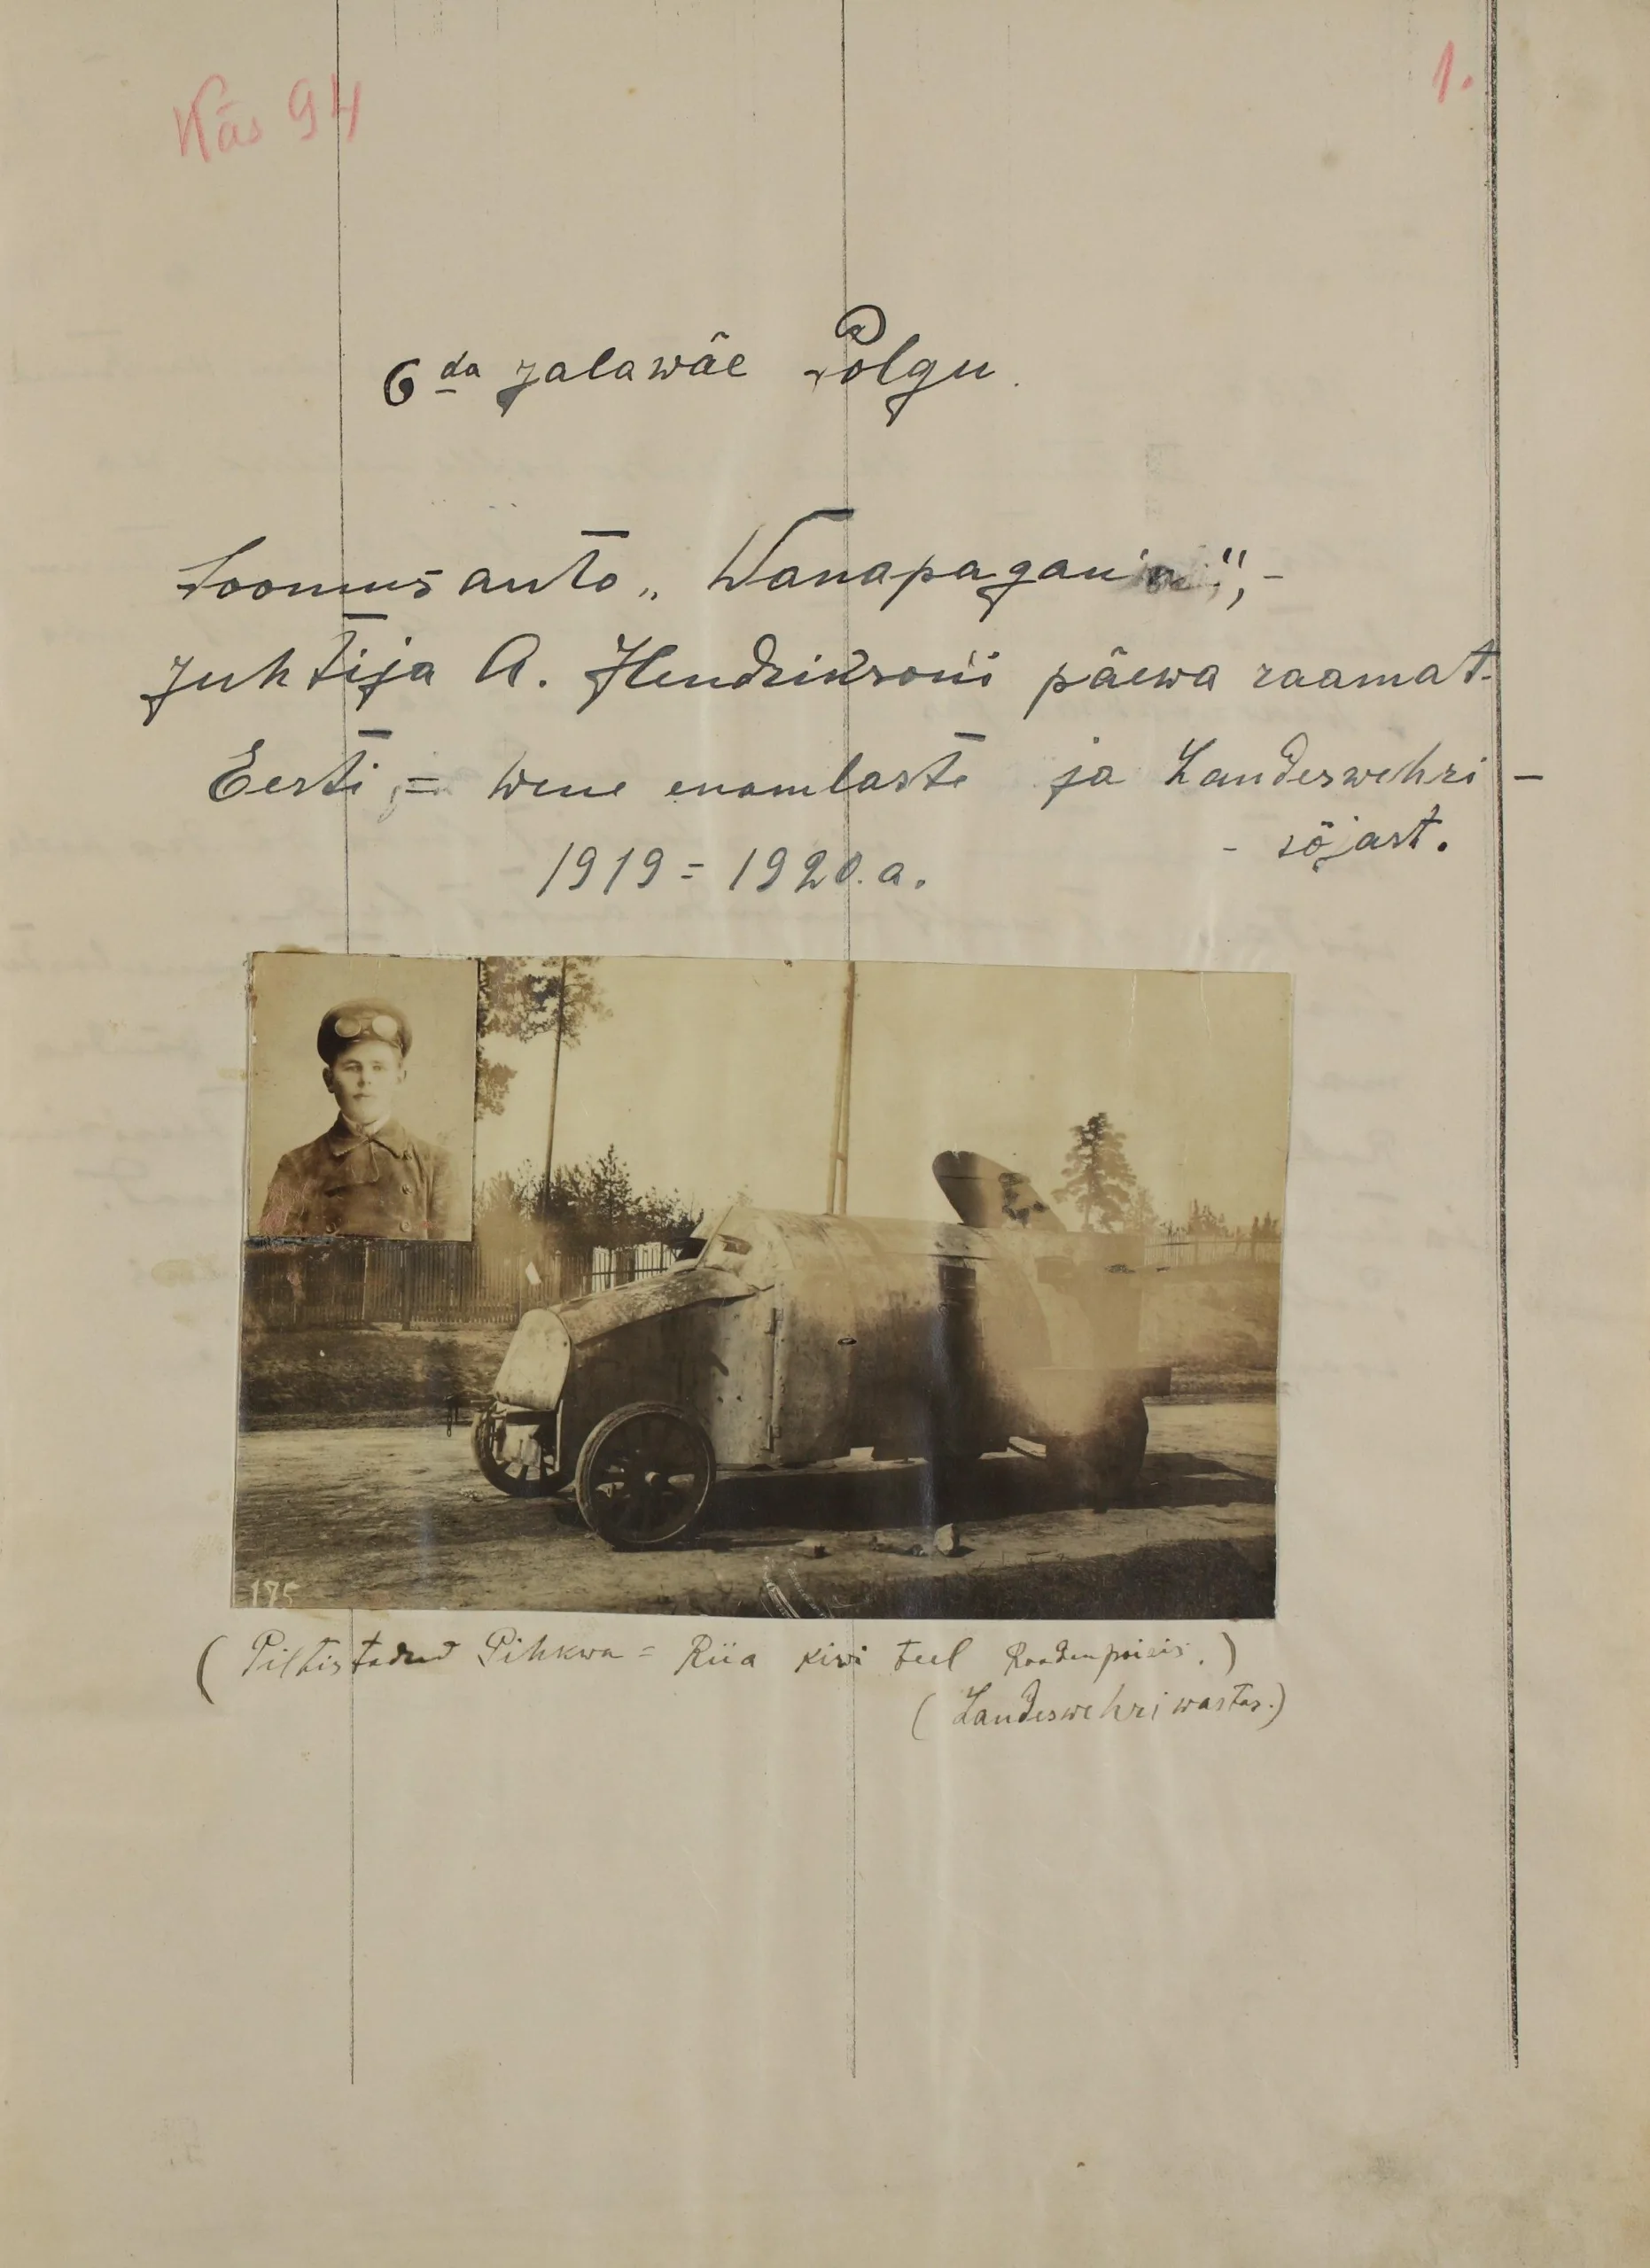 Käs 94
1.
6da jalawäe Polgu.
Soomus auto „Wanapagan'a",-
juhtija A. Hendriksoni päewa raamat.
Eesti = wene enamlaste ja Landeswehri -
- sõjast.
1919 = 1920.a.
175
(Piltistadud Pihkwa = Riia kiwi teel Rodenpoisis.)
(Landeswehri wastas.)